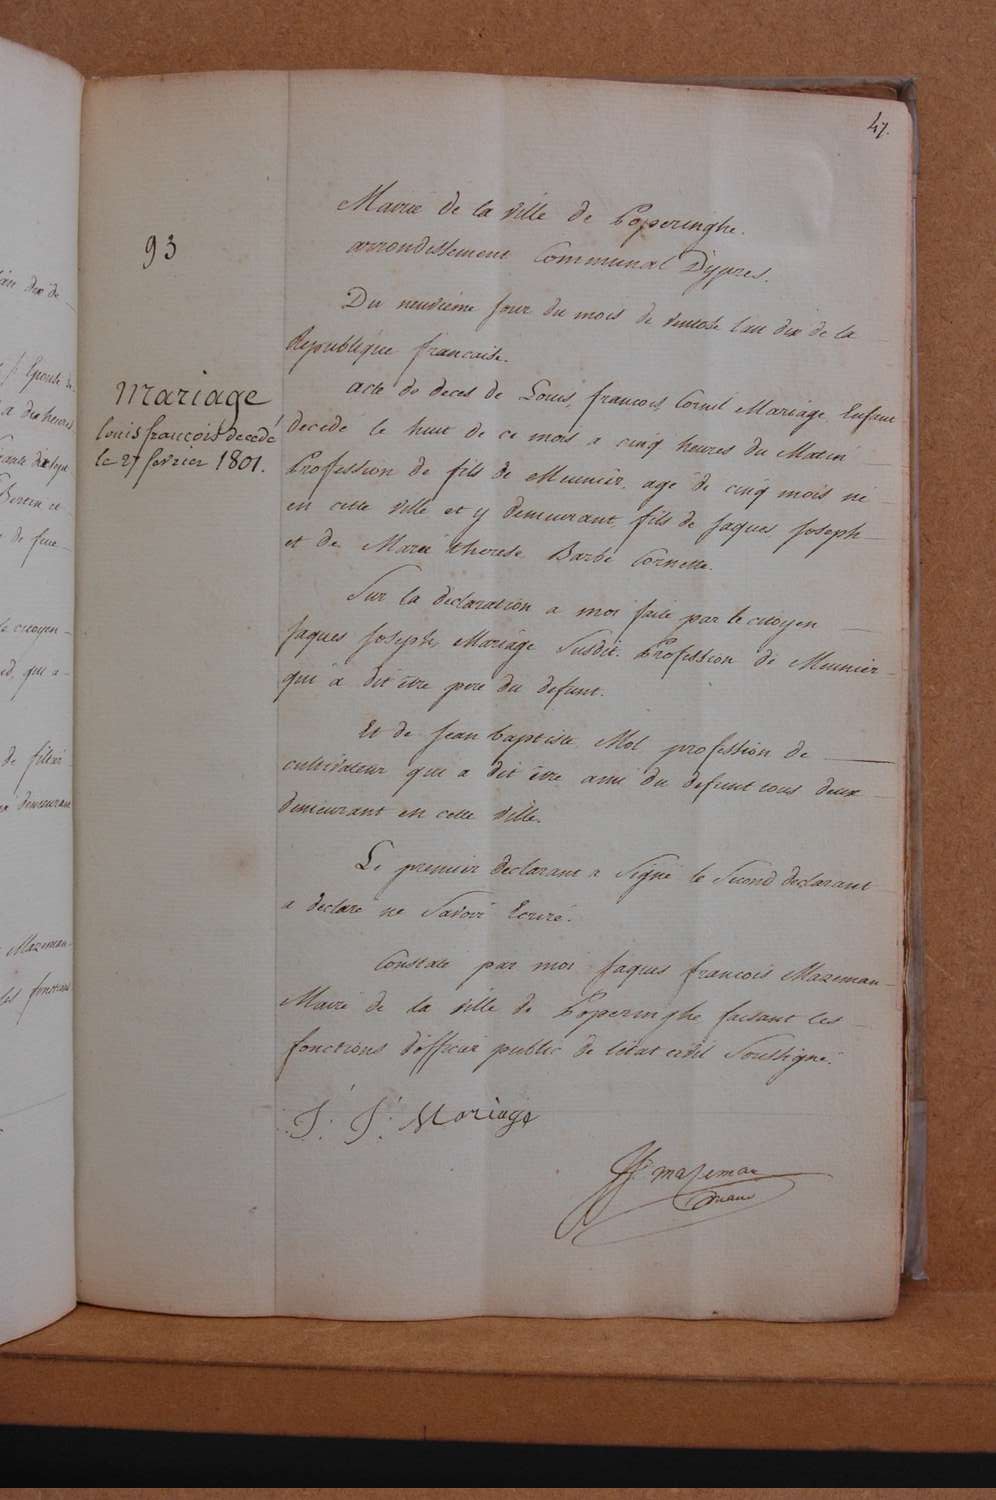 47.
Mairie de la ville de Poperinghe.
arrondissement Communal D'ypres.
93
Du neuvieme jour du mois de ventose l'an dix de la
Republique francaise.
mariage
louis francois decedé
le 27 fevrier 1801.
acte de deces de Louis, francois, Cornil Mariage, Enfant
decedé le huit de ce mois a cinq heures du Matin
Profession de fils de Meunier, agé de cinq mois né
en cette ville et y demeurant, fils de Jaques Joseph
et de Marie therese Barbe Cornette.
Sur la declaration a moi faite par le citoyen
Jaques Joseph, Mariage Susdit. Profession de Meunier
qui a dit être pere du defunt.
Et de Jean baptiste Mol profession de
cultivateur qui a dit être ami du defunt tous deux
demeurant en cette ville.
Le premier declarant a Signé le Second declarant
a declaré ne Savoir Ecrire.
Constaté par moi Jaques francois Mazeman
Maire de la ville de Poperinghe faisant les
fonctions d'officier public de l'état civil Soussigné.
J. J. Mariage
JF. mazeman
maire